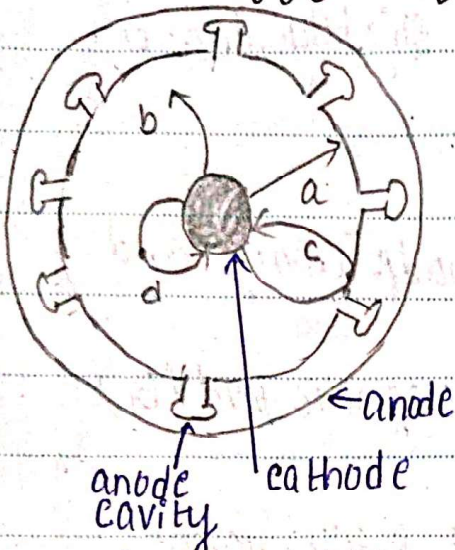 b
a
c
d
←anode
anode
cavity
cathode